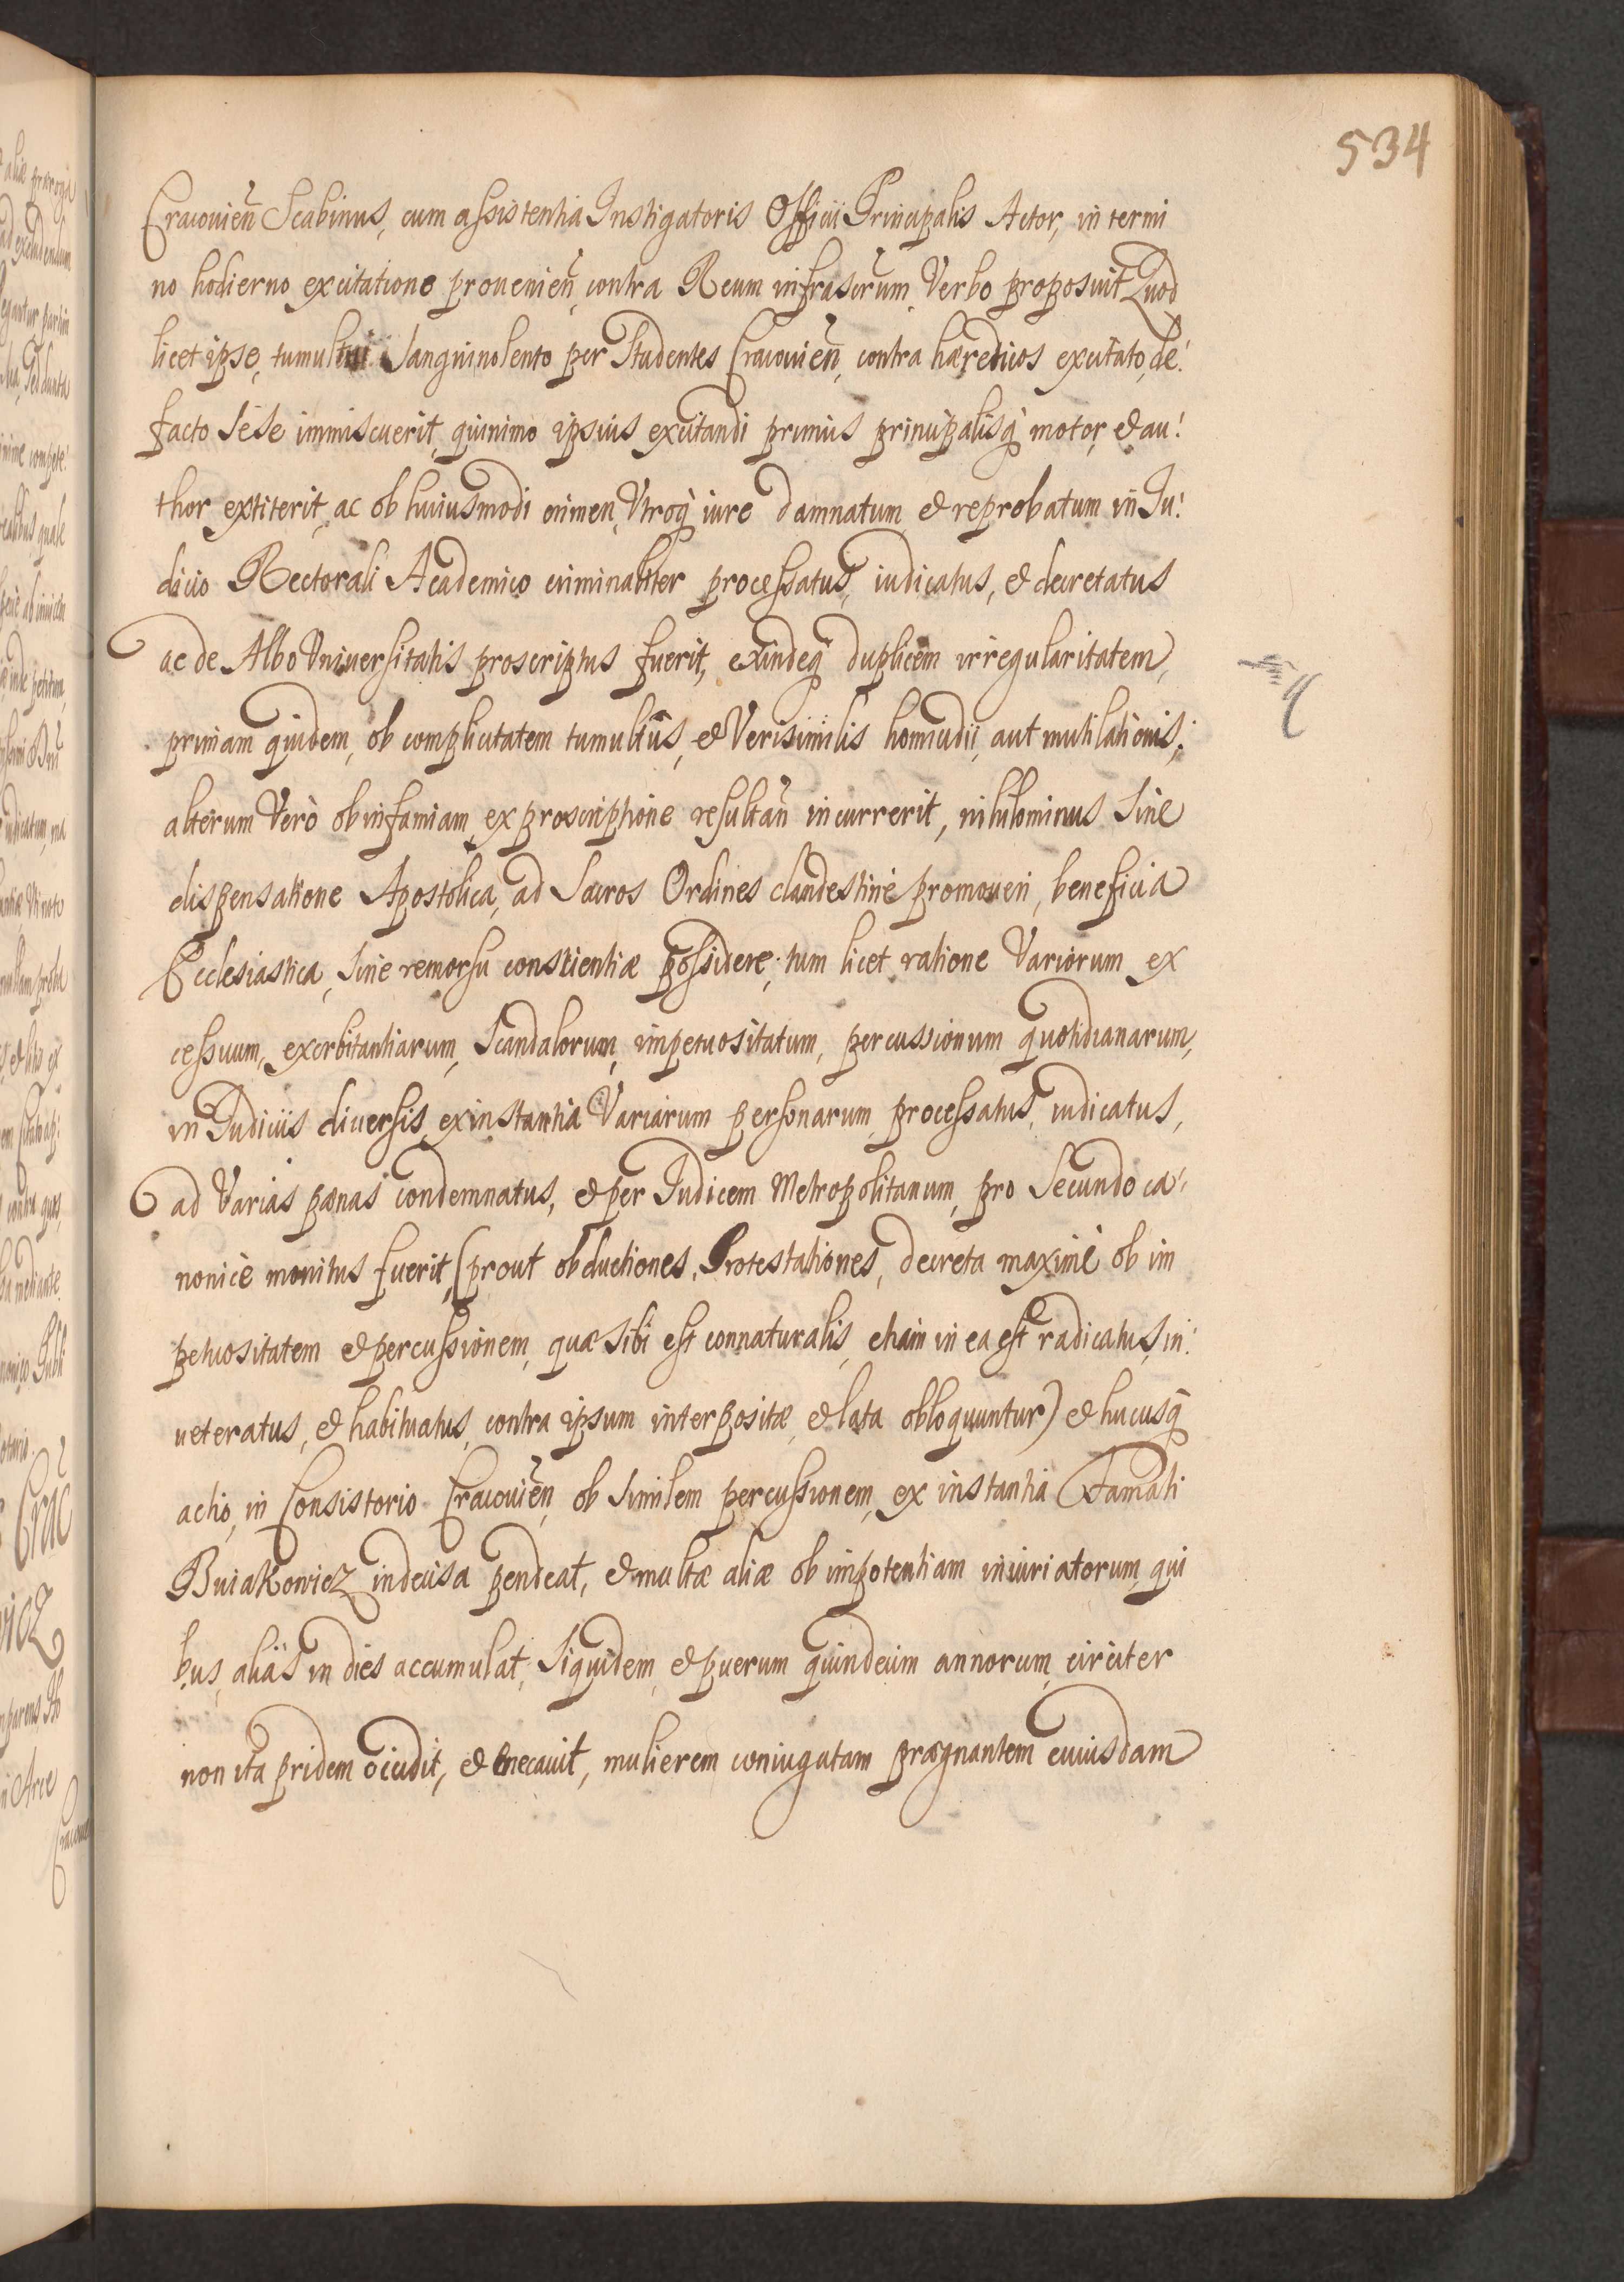 534
Cracouien̄ Scabinus, cum assistentia Instigatoris Officii Principalis Actor, in termi
no hodierno excitatione prouenien̄, contra Reum infrascrum, Verbo proposuit Quod
licet ipse, tumultui Sanguinolento per Studentes Cracouien̄, contra hæreticos excitato, de
facto Sese immiscuerit, quinimo ipsius excitandi primus principalisq́ motor, et au
thor extiterit, ac ob huiusmodi crimen, Vtroq́ iure damnatum et reprobatum in Iu
dicio Rectorali Academico criminaliter processatus, iudicatus, et decretatus
ac de Albo Vniuersitatis proscriptus fuerit, exindeq́ duplicem irregularitatem,
primam quidem, ob complicitatem tumultûs, et Verisimilis homicidii, aut mutilationis,
alterum Verò ob infamiam ex proscriptione resultan̄ incurrerit, nihilominus Sine
dispensatione Apostolica, ad Sacros Ordines clandestinè promoueri, beneficia
Ecclesiastica, Sine remorsu conscientiæ possidere, tum licet ratione Variorum ex
cessuum, exorbitantiarum, Scandalorum, impetuositatum, percussionum quotidianarum,
in Iudiciis diuersis, ex instantia Variarum personarum, processatus, iudicatus,
ad Varias pænas condemnatus, et per Iudicem Metropolitanum, pro Secundo ca
nonicè monitus fuerit, (prout obductiones, Protestationes, decreta maximè ob im
petuositatem et percussionem, quæ Sibi est connaturalis, etiam in ea est radicatus, in
ueteratus, et habituatus, contra ipsum interpositæ, et lata obloquuntur) et hucusq́
actio, in Consistorio Cracouien̄, ob Similem percussionem, ex instantia Famati
Buiakowicz indecisa pendeat, et multæ aliæ ob impotentiam iniuriatorum, qui
bus, aliàs in dies accumulat, Siquidem et puerum quindecim annorum circiter
non ita pridem occidit, et enecauit, mulierem coniugatam prægnantem cuiusdam